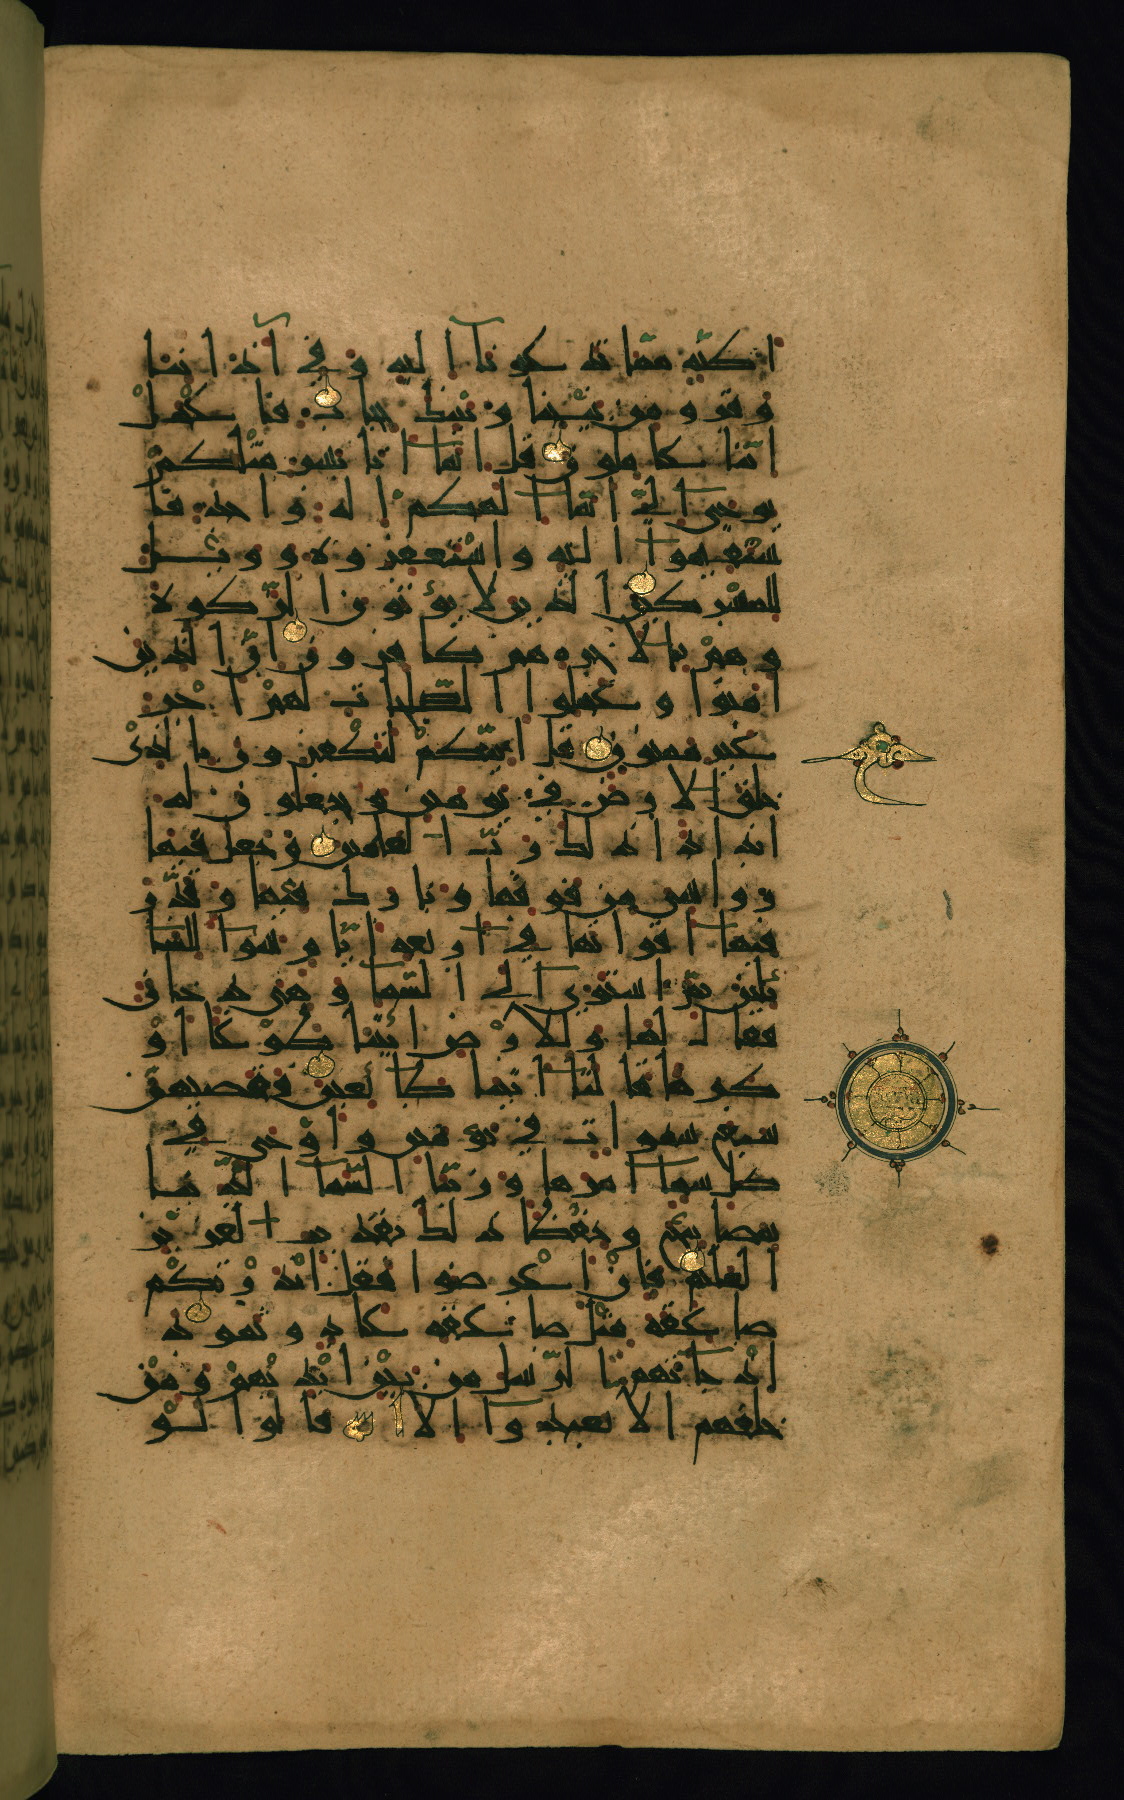 اكنة مما تدعونا اليه وفي آذاننا
وقر ومن بيننا وبينك حجاب فاعمل
اننا عاملون قل انما انا بشر مثلكم
يوحى الي انما الهكم اله واحد فا
ستقيموا اليه واستغفروه وويل
للمشركين الذين لا يؤتون الزكوة
وهم بالاخرة هم كافرون ان الذين
امنوا وعملوا الصالحات لهم اجر
غير ممنون قل ائنكم لتكفرون بالذي
خلق الارض في يومين وتجعلون له
اندادا ذلك رب العالمين وجعل فيها
رواسي من فوقها وبارك فيها وقدر
فيها اقواتها في اربعة ايام سواء للسا
ئلين ثم استوى الى السماء وهي دخان
فقال لها وللارض ائتيا طوعا او
كرها قالتا اتينا طائعين فقضيهن
سبع سموات في يومين واوحى في
كل سماء امرها وزينا السماء الدنيا
بمصابيح وحفظا ذلك تقدير العزيز
العليم فان اعرضوا فقل انذرتكم
صاعقة مثل صاعقة عاد وثمود
اذ جاءتهم الرسل من بين ايديهم ومن
خلفهم الا تعبدوا الا الله قالوا لو